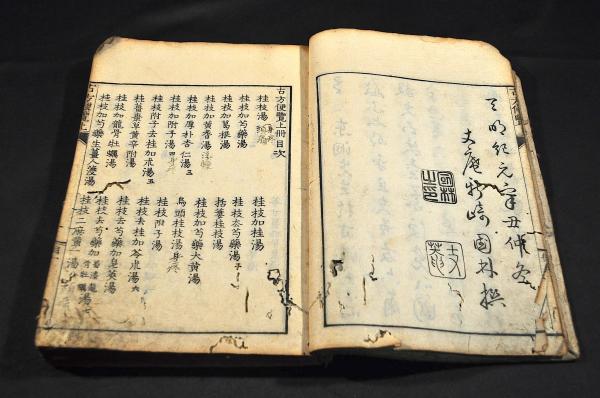 天明紀元辛丑仲冬
崎國林撰
古方便覽
古方便覽上冊目次
桂枝湯
桂枝加桂湯
桂枝加芍藥湯
桂枝去芍藥湯
桂枝加葛根湯
括蔞桂枝湯
桂枝加黃耆湯
桂枝加芍藥大黃湯
桂枝加厚朴杏仁湯 三
烏頭桂枝湯 身疼
桂枝加附子湯 四
桂枝附子湯
桂薑棗草黃辛附湯
桂枝去桂加苓朮湯 六
桂枝附子去桂加朮湯 五
桂枝去芍藥加皂莢湯
桂枝加龍骨牡蠣湯
桂枝去芍藥加蜀漆龍骨牡蠣湯 七
桂枝加芍藥生薑人參湯
桂枝二麻黃一湯
古方便覽上